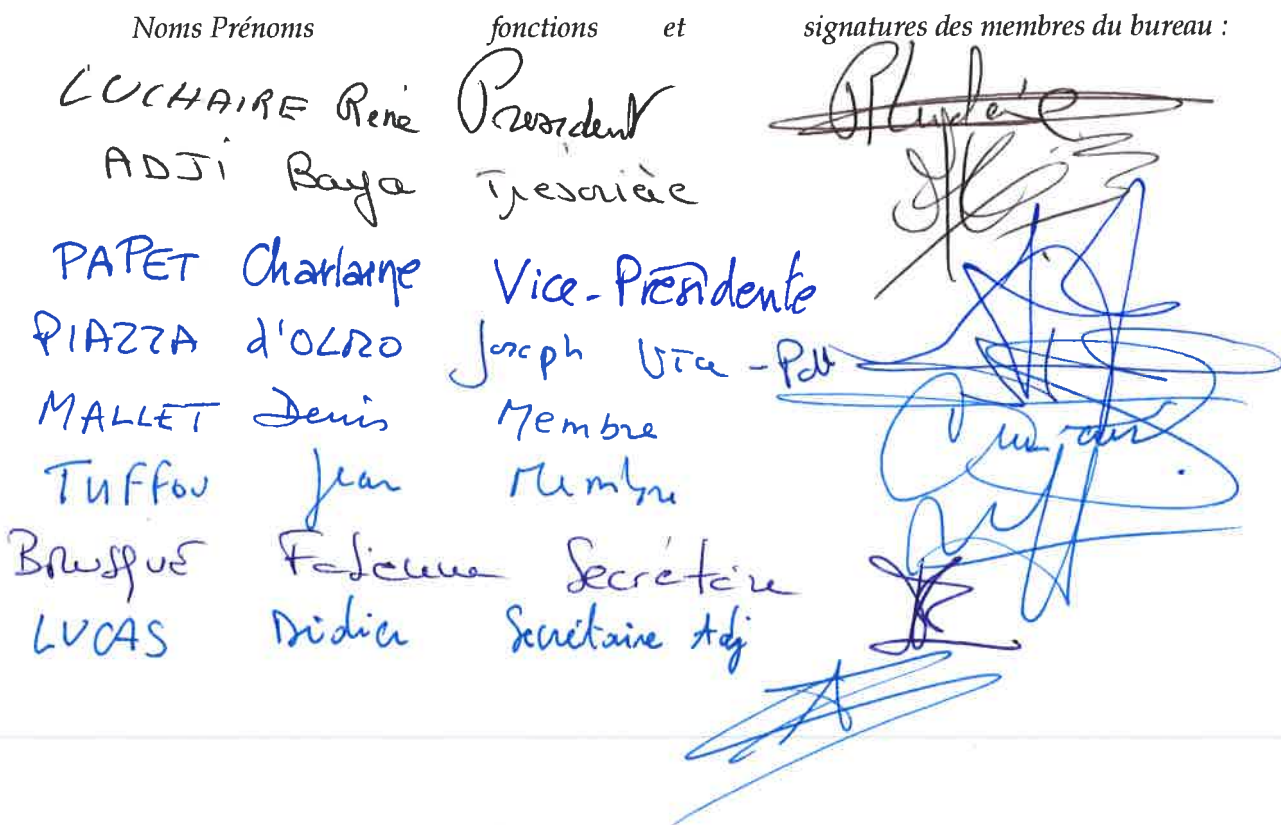 Noms Prénoms fonctions et signatures des membres du bureau :
LUCHAIRE René Président
ADJI Baya Trésorière
PAPET Charlaine Vice-Présidente
PIAZZA d'OLRO Joseph Vice-Pdt
MALLET Denis Membre
TUFFOU Jean Membre
BRUSQUE Fabienne Secrétaire
LUCAS Didier Secrétaire Adj